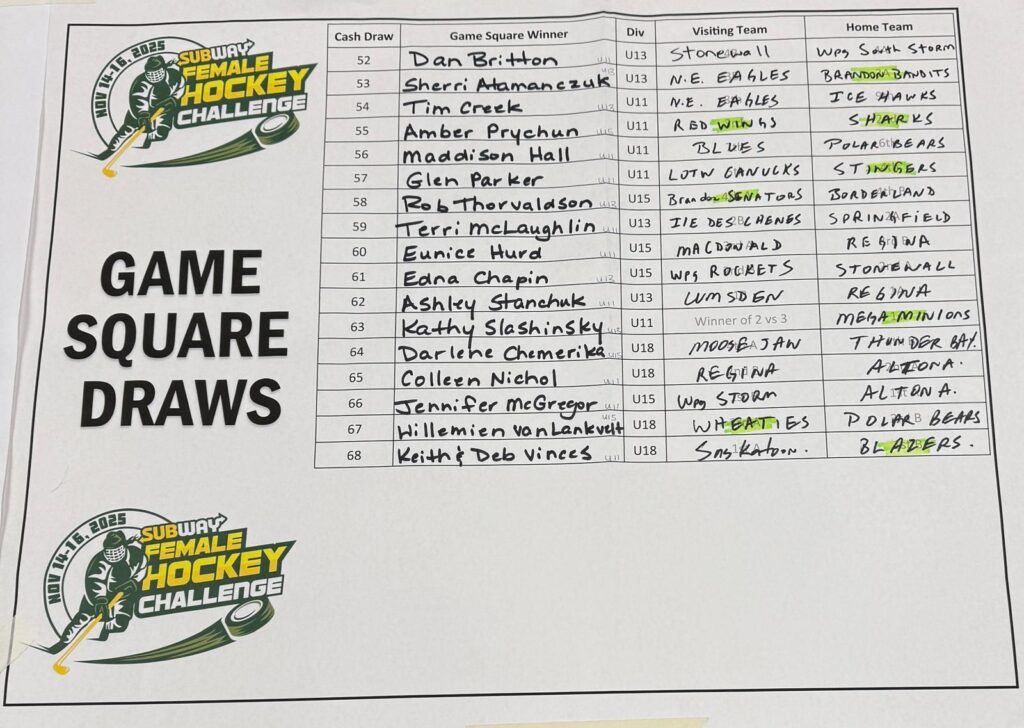 NOV 14-16, 2025
SUBWAY
FEMALE
HOCKEY
CHALLENGE
GAME
SQUARE
DRAWS
NOV 14-16, 2025
SUBWAY
FEMALE
HOCKEY
CHALLENGE
Cash Draw Game Square Winner Div Visiting Team Home Team
52 Dan Britton U11 U13 Stonewall Wpg South Storm
53 Sherri Atamanczuk U13 U13 N.E. EAGLES BRANDON BANDITS
54 Tim Creek U13 U11 N.E. EAGLES ICE HAWKS
55 Amber Prychun U15 U11 RED WINGS SHARKS
56 Maddison Hall U11 U11 BLUES POLAR BEARS
57 Glen Parker U11 U11 LOTW CANUCKS STINGERS
58 Rob Thorvaldson U13 U15 Brandon SENATORS BORDERLAND
59 Terri McLaughlin U11 U13 ILE DES CHENES SPRINGFIELD
60 Eunice Hurd U11 U15 MACDONALD REGINA
61 Edna Chapin U13 U15 WPG ROCKETS STONEWALL
62 Ashley Stanchuk U11 U13 LUMSDEN REGINA
63 Kathy Slashinsky U13 U11 Winner of 2 vs 3 MEGA MINIONS
64 Darlene Chemerika U15 U18 MOOSEJAW THUNDER BAY.
65 Colleen Nichol U11 U18 REGINA ALTONA.
66 Jennifer McGregor U11 U15 Wpg STORM ALTONA.
67 Willemien vanLankvelt U15 U18 WHEATIES POLAR BEARS
68 Keith & Deb Vinees U11 U18 Saskatoon. BLAZERS.